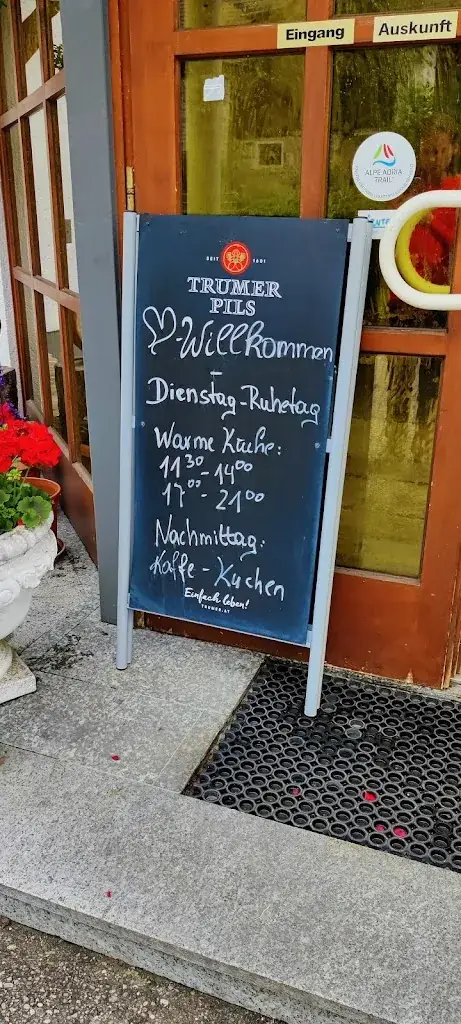 Eingang
Auskunft
ALPE ADRIA
TRAIL
SEIT 1601
TRUMER
PILS
♡-Willkommen
-
Dienstag-Ruhetag
Warme Küche:
11³⁰-14⁰⁰
17⁰⁰-21⁰⁰
Nachmittag:
Kaffe-Kuchen
Einfach leben!
TRUMER.AT